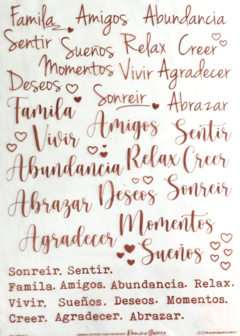 Familia Amigos Abundancia
Sentir Sueños Relax Creer
Momentos Vivir Agradecer
Deseos Sonreir Abrazar
Familia Amigos Sentir
Vivir
Abundancia Relax Creer
Abrazar Deseos Sonreir
Agradecer Momentos
Sueños
Sonreir. Sentir.
Familia. Amigos. Abundancia. Relax.
Vivir. Sueños. Deseos. Momentos.
Creer. Agradecer. Abrazar.